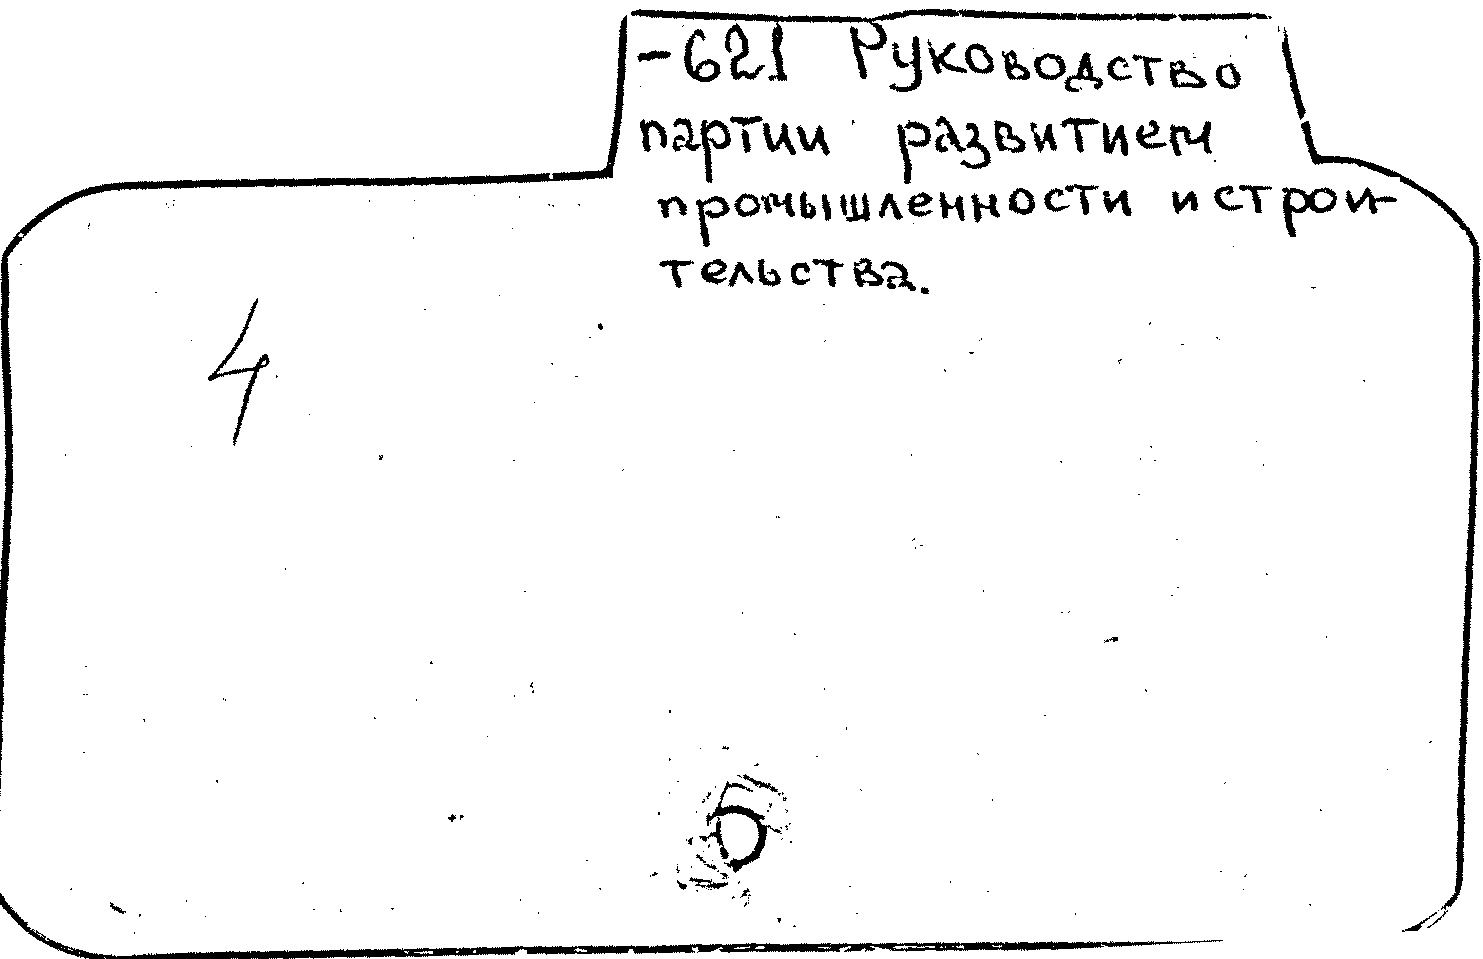 -621 Руководство
партии развитием
промышленности и строи-
тельства.
4